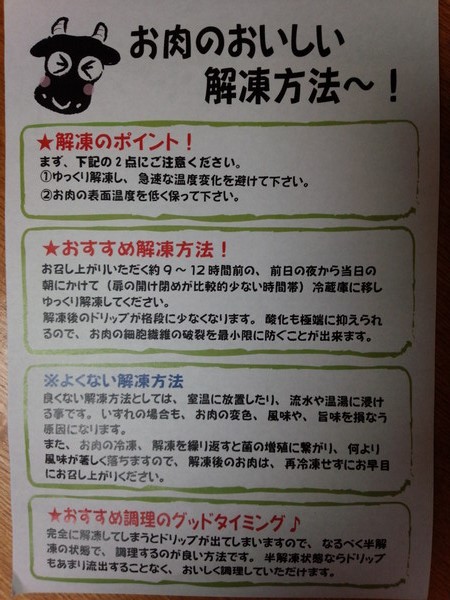 お肉のおいしい
解凍方法～！
★解凍のポイント！
まず、下記の2点にご注意ください。
①ゆっくり解凍し、急速な温度変化を避けて下さい。
②お肉の表面温度を低く保って下さい。
★おすすめ解凍方法！
お召し上がりいただく約9～12時間前の、前日の夜から当日の
朝にかけて（扉の開け閉めが比較的少ない時間帯）冷蔵庫に移し
ゆっくり解凍してください。
解凍後のドリップが格段に少なくなります。酸化も極端に抑えられ
るので、お肉の細胞繊維の破裂を最小限に防ぐことが出来ます。
※よくない解凍方法
良くない解凍方法としては、室温に放置したり、流水や温湯に浸け
る事です。いずれの場合も、お肉の変色、風味や、旨味を損なう
原因になります。
また、お肉の冷凍、解凍を繰り返すと菌の増殖に繋がり、何より
風味が著しく落ちますので、解凍後のお肉は、再冷凍せずにお早目
にお召し上がりください。
★おすすめ調理のグッドタイミング♪
完全に解凍してしまうとドリップが出てしまいますので、なるべく半解
凍の状態で、調理するのが良い方法です。半解凍状態ならドリップ
もあまり流出することなく、おいしく調理していただけます。